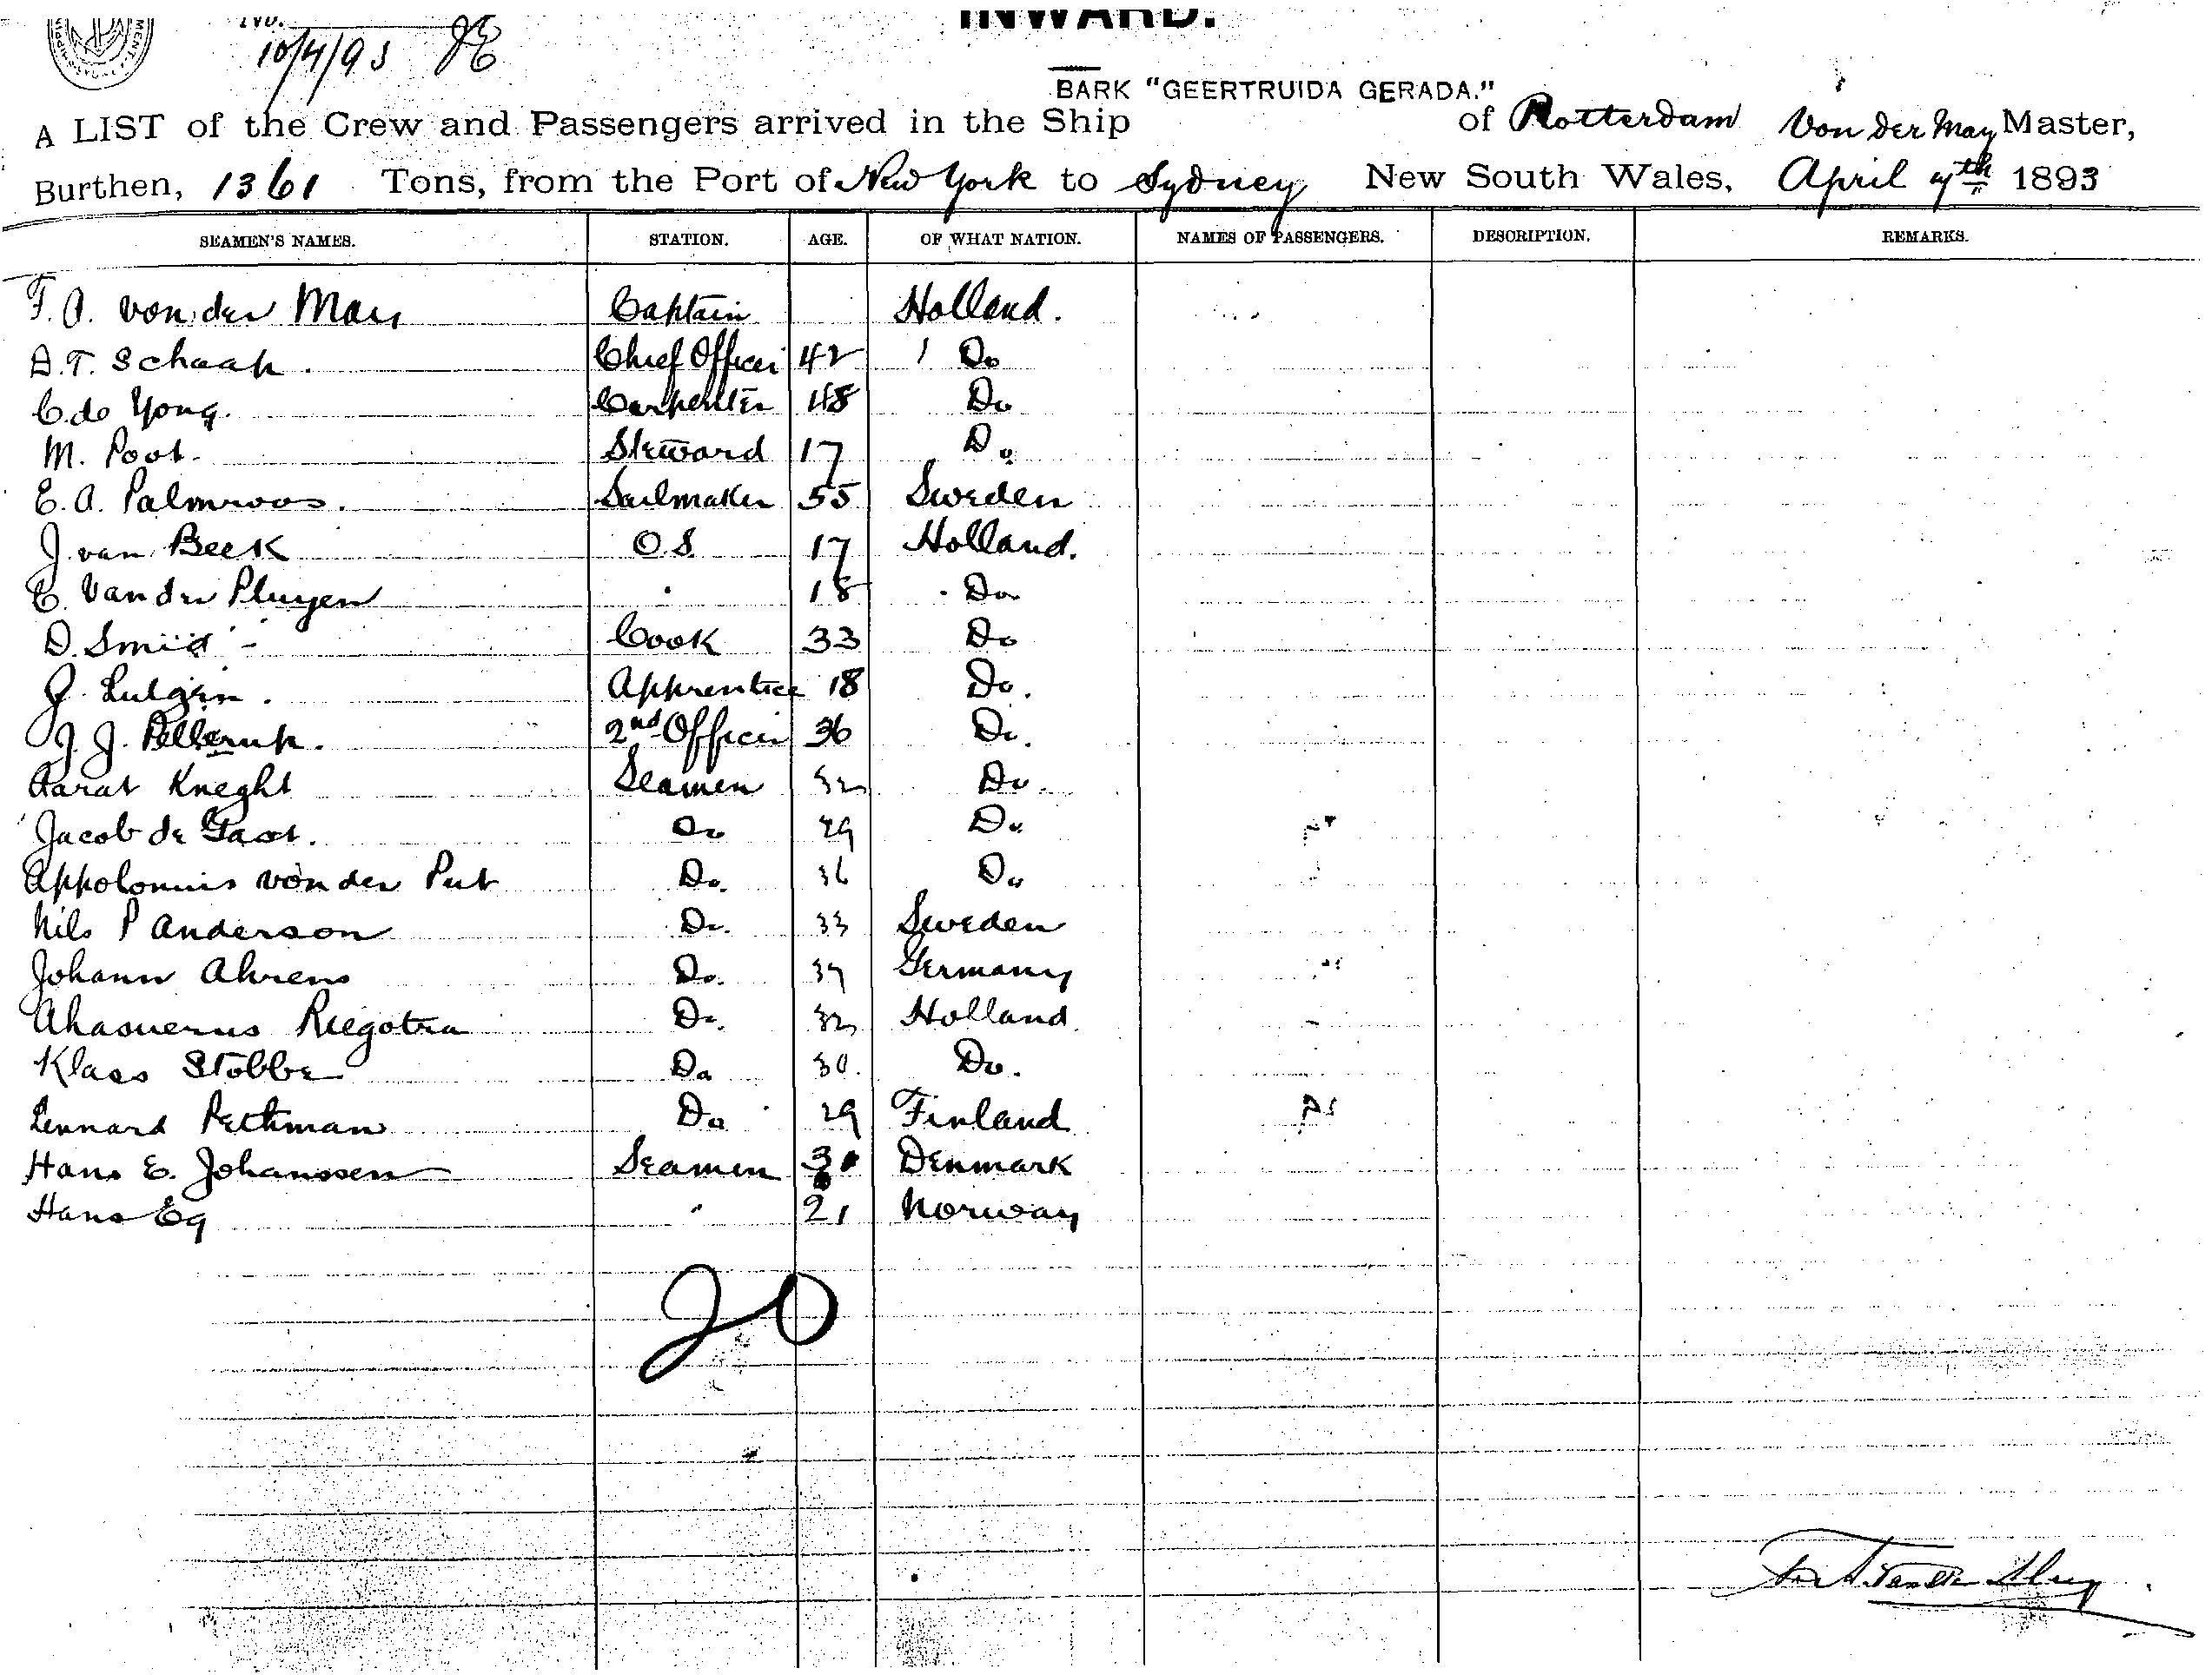 INWARD.
10/4/93
BARK "GEERTRUIDA GERADA."
A LIST of the Crew and Passengers arrived in the Ship of Rotterdam Von der May Master,
Burthen, 1361 Tons, from the Port of New York to Sydney New South Wales, April 7th 1893
SEAMEN'S NAMES. STATION. AGE. OF WHAT NATION. NAMES OF PASSENGERS. DESCRIPTION. REMARKS.
F. A. von der May Captain Holland.
D. T. Schaap. Chief Officer 42 Do
C. de Yong. Carpenter 48 Do
M. Poot. Steward 17 Do
E. A. Palmroos. Sailmaker 55 Sweden
J. van Beek O.S. 17 Holland.
C. Van der Pluyen " 18 Do
D. Smid Cook 33 Do
J. Lulgin. Apprentice 18 Do.
J. J. Pellerup. 2nd Officer 36 Do.
Aarat Kneght Seamen 32 Do.
Jacob de Gast. Do 29 Do
Appolonius von der Put Do. 36 Do
Nils P Anderson Do. 33 Sweden
Johann Ahrens Do. 37 Germany
Ahasuerus Riegotra Do. 32 Holland
Klaas Stobbe Do 30. Do.
Lennard Pethman Do 29 Finland
Hans E. Johanssen Seamen 30 Denmark
Hans Eg " 21 Norway
20